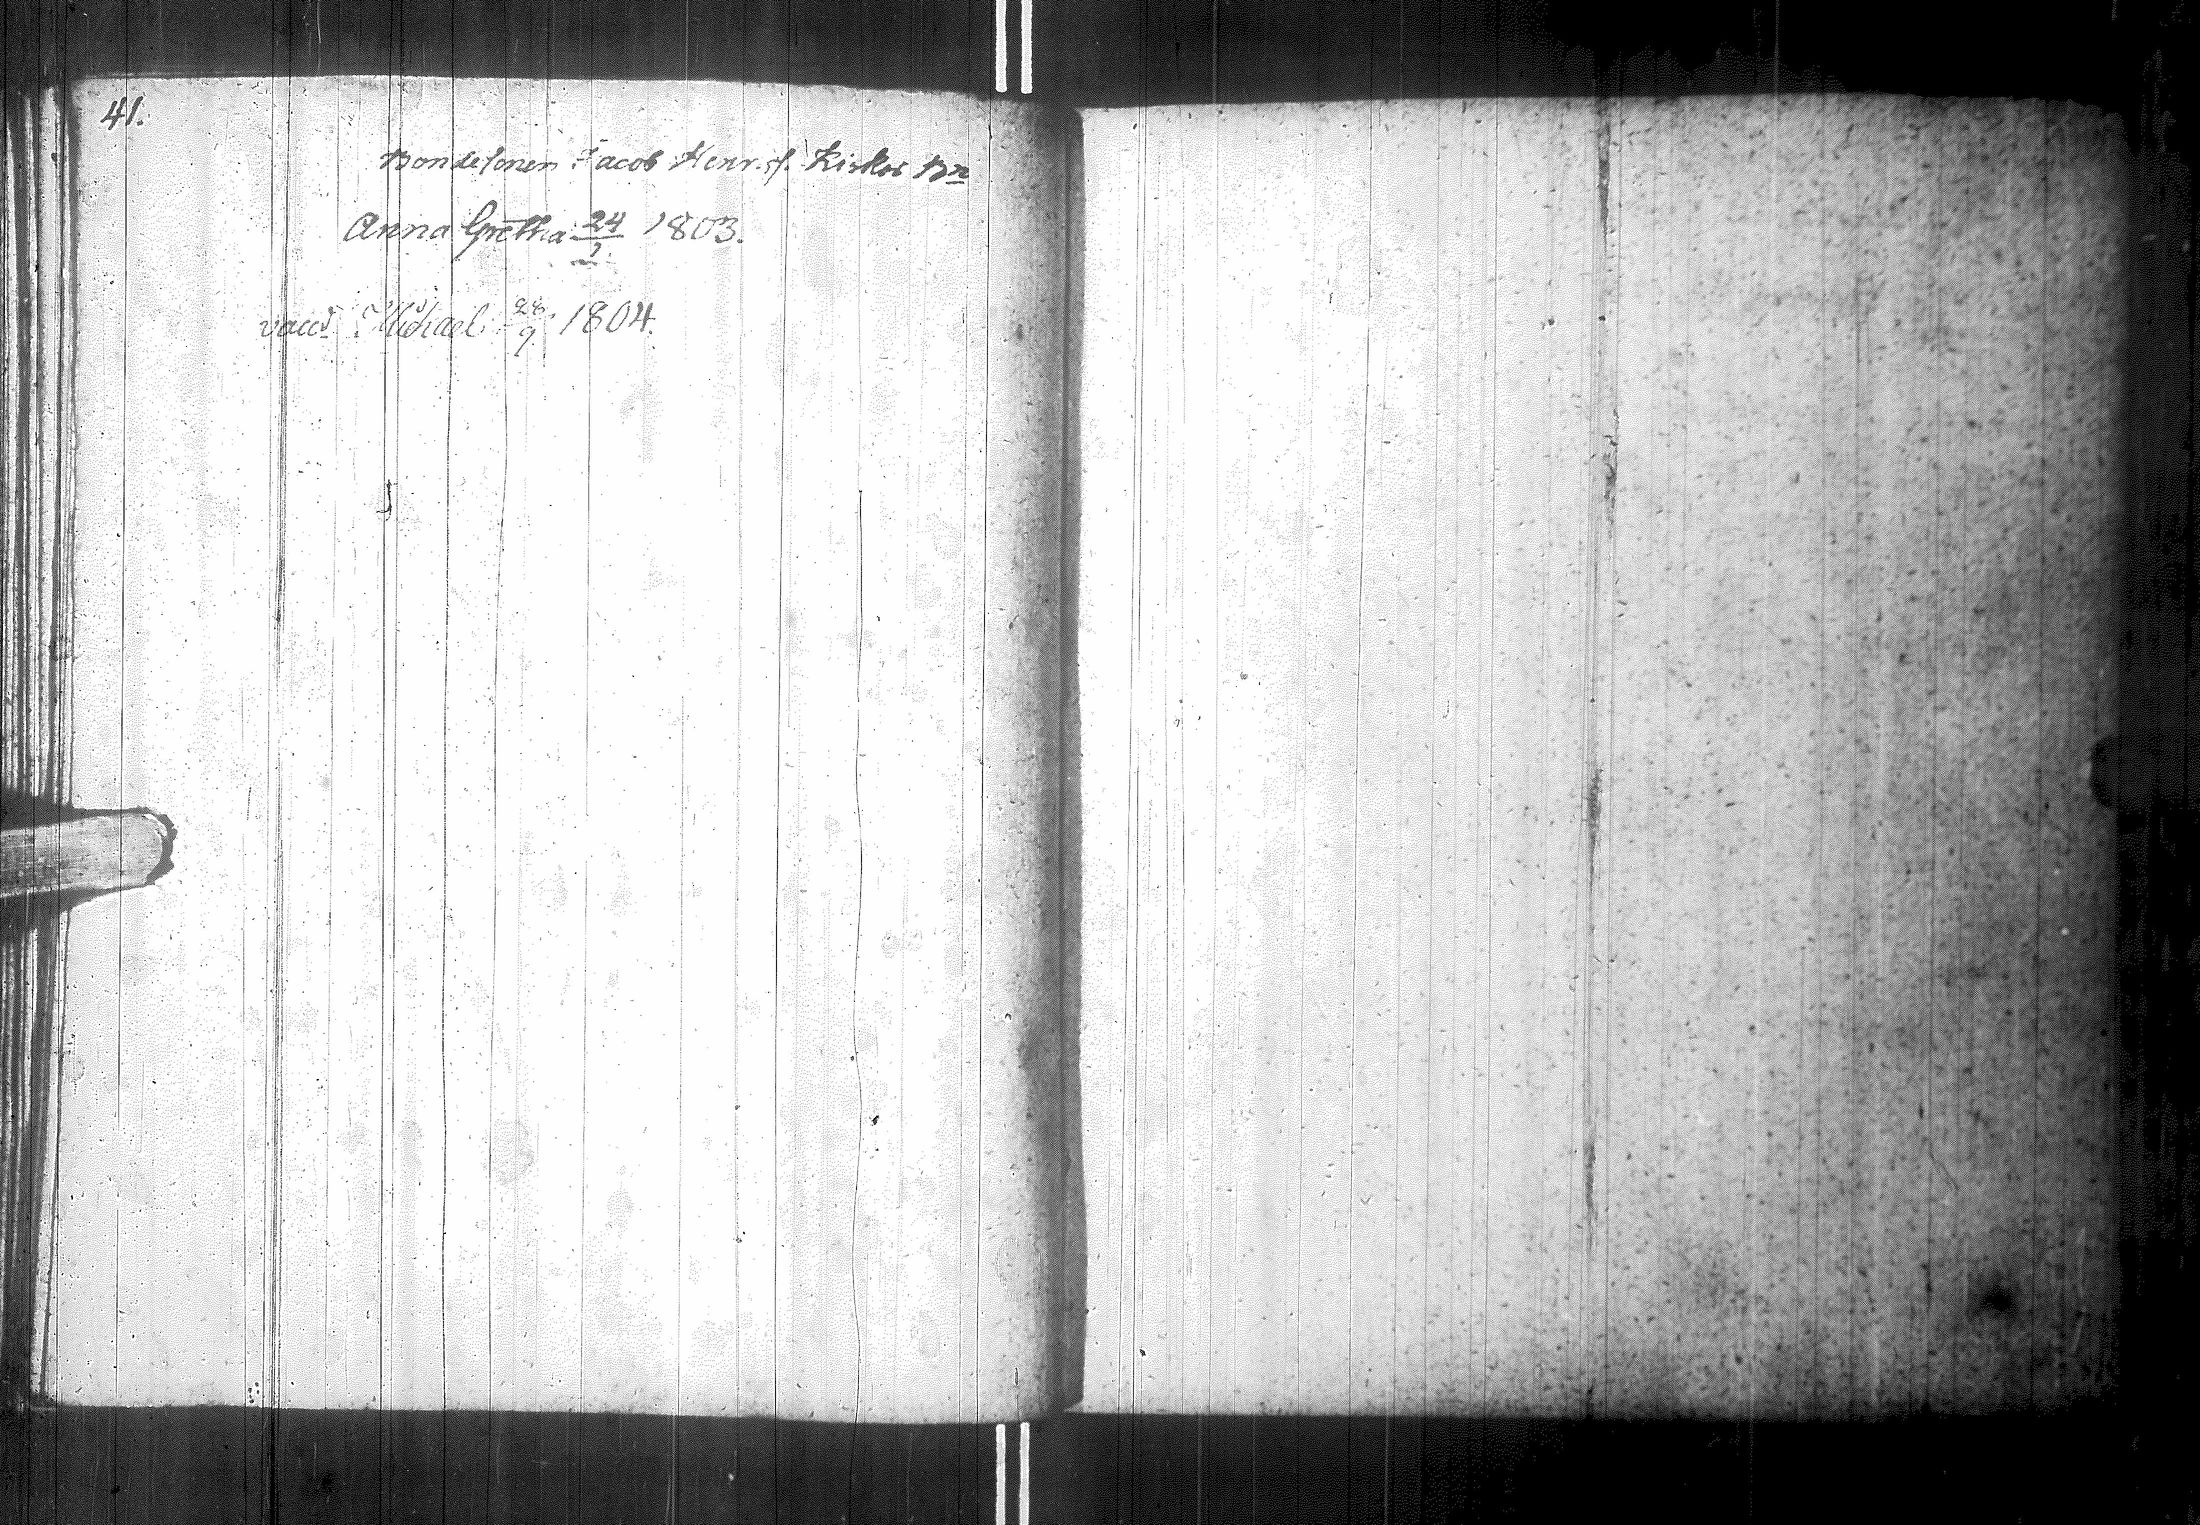 41.
Bondesonen Jacob Henr. s. Kirkos Bn
Anna Gretha 24/7 1803.
vacc. Michael 28/9 1804.